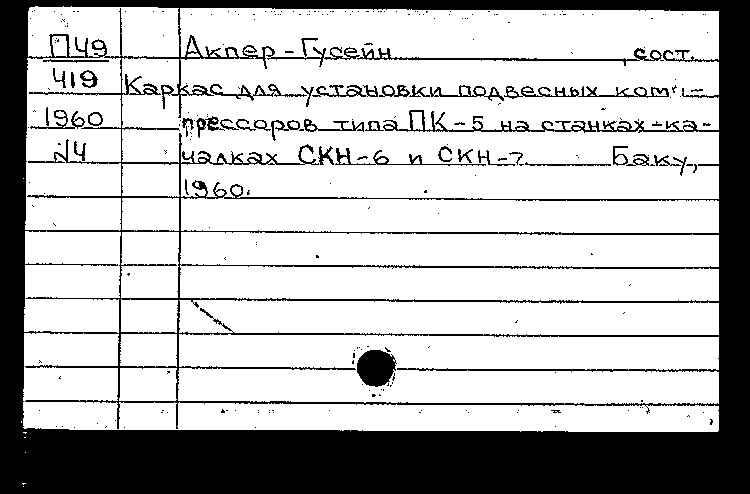 П49 Акпер-Гусейн , сост.
419 Каркас для установки подвесных ком-
1960 прессоров типа ПК-5 на станках-ка-
№4 чалках СКН-6 и СКН-7. Баку,
1960.